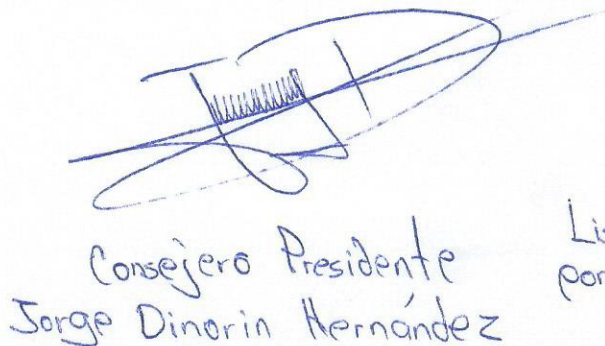 Consejero Presidente
Jorge Dinorin Hernández
Lis
por